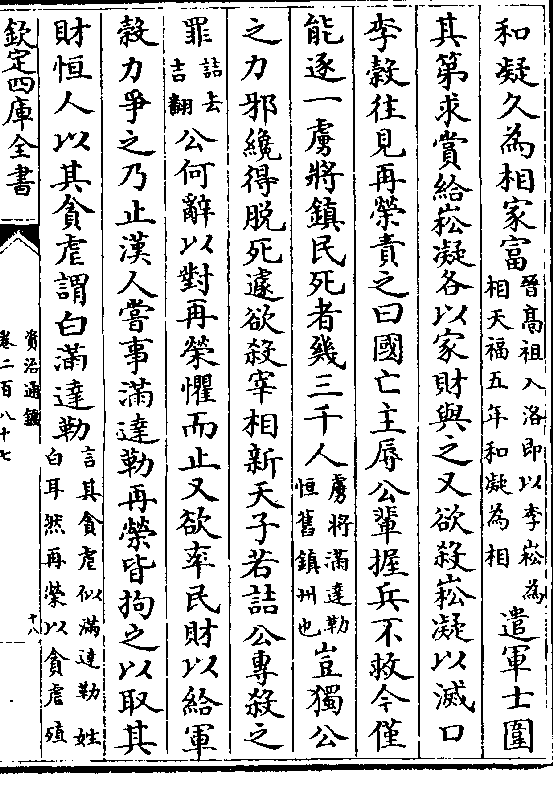 和凝久為相家富晉高祖入洛即以李崧為相天福五年和凝為相遣軍士圍
其第求賞給崧凝各以家財與之又欲殺崧凝以滅口
李榖往見再榮責之曰國亡主辱公輩握兵不救今僅
能逐一虜將鎮民死者幾三千人虜將滿達勒恒舊鎮州也豈獨公
之力邪纔得脫死遽欲殺宰相新天子若詰公專殺之
罪詰去吉翻公何辭以對再榮懼而止又欲率民財以給軍
榖力爭之乃止漢人嘗事滿達勒再榮皆拘之以取其
財恒人以其貪虐謂白滿達勒言其貪虐似滿達勒姓白耳然再榮以貪虐殖
欽定四庫全書
資治通鑑
卷二百八十七
十八